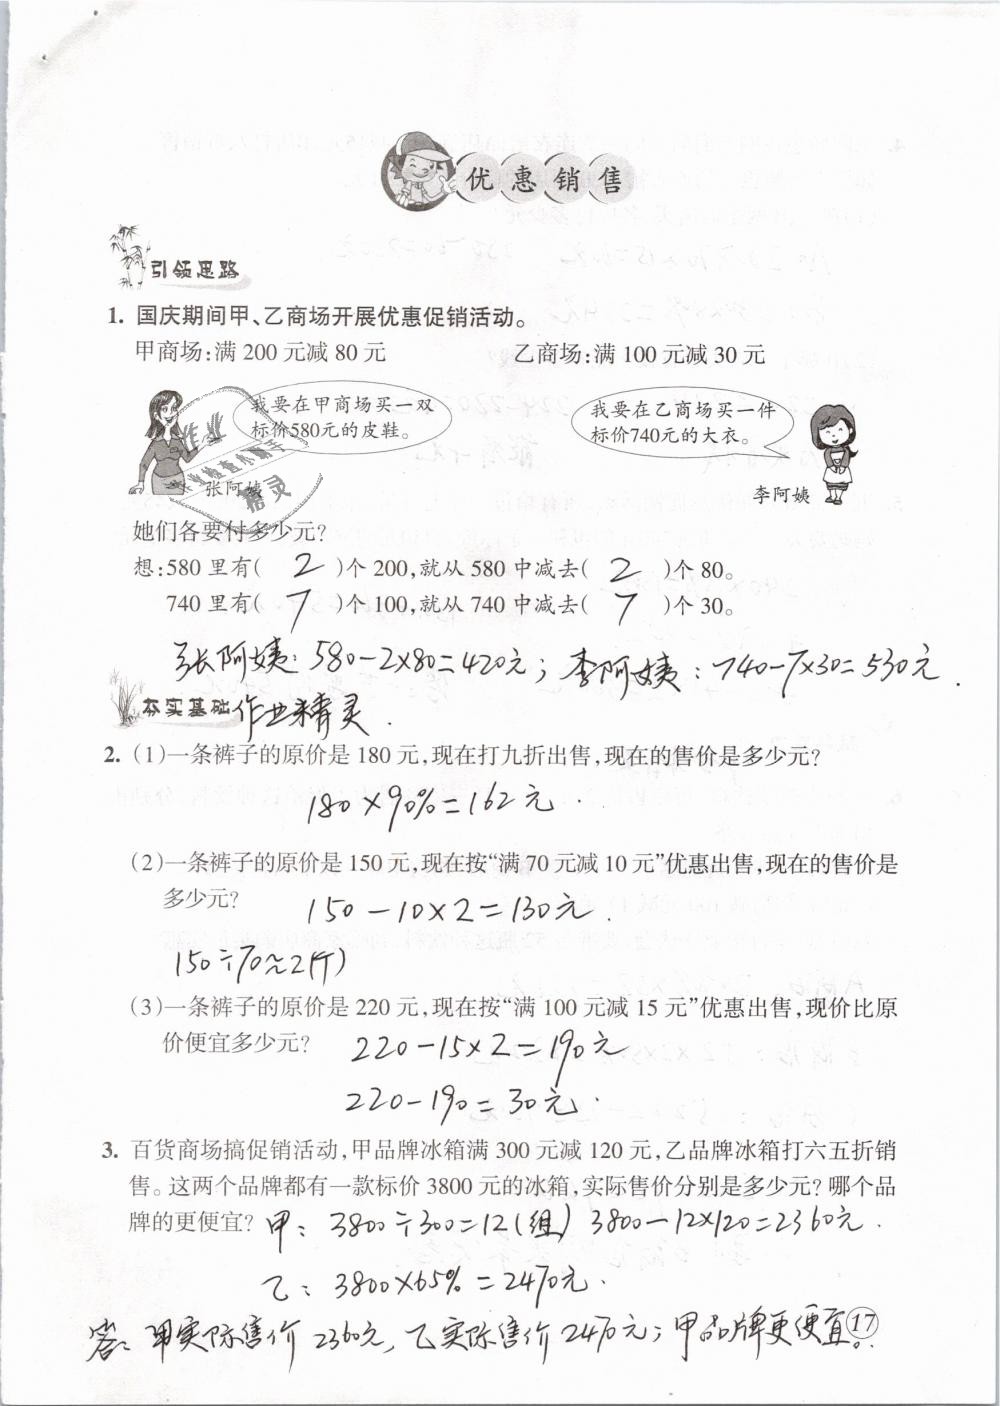 优惠销售
引领思路
1. 国庆期间甲、乙商场开展优惠促销活动。
甲商场:满 200 元减 80 元 乙商场:满 100 元减 30 元
我要在甲商场买一双
标价580元的皮鞋。
我要在乙商场买一件
标价740元的大衣。
作业
作业检查小帮手
精灵
张阿姨
李阿姨
她们各要付多少元?
想:580 里有( 2 )个 200,就从 580 中减去( 2 )个 80。
740 里有( 7 )个 100,就从 740 中减去( 7 )个 30。
张阿姨: 580-2×80=420元; 李阿姨: 740-7×30=530元.
夯实基础 作业精灵.
2. (1)一条裤子的原价是 180 元,现在打九折出售,现在的售价是多少元?
180×90%=162元.
(2)一条裤子的原价是 150 元,现在按“满 70 元减 10 元”优惠出售,现在的售价是
多少元? 150-10×2=130元.
150÷70≈2(个)
(3)一条裤子的原价是 220 元,现在按“满 100 元减 15 元”优惠出售,现价比原
价便宜多少元? 220-15×2=190元
220-190=30元.
3. 百货商场搞促销活动,甲品牌冰箱满 300 元减 120 元,乙品牌冰箱打六五折销
售。这两个品牌都有一款标价 3800 元的冰箱,实际售价分别是多少元? 哪个品
牌的更便宜? 甲: 3800÷300=12(组) 3800-12×120=2360元.
乙: 3800×65%=2470元.
答: 甲实际售价 2360元, 乙实际售价 2470元; 甲品牌更便宜。
17